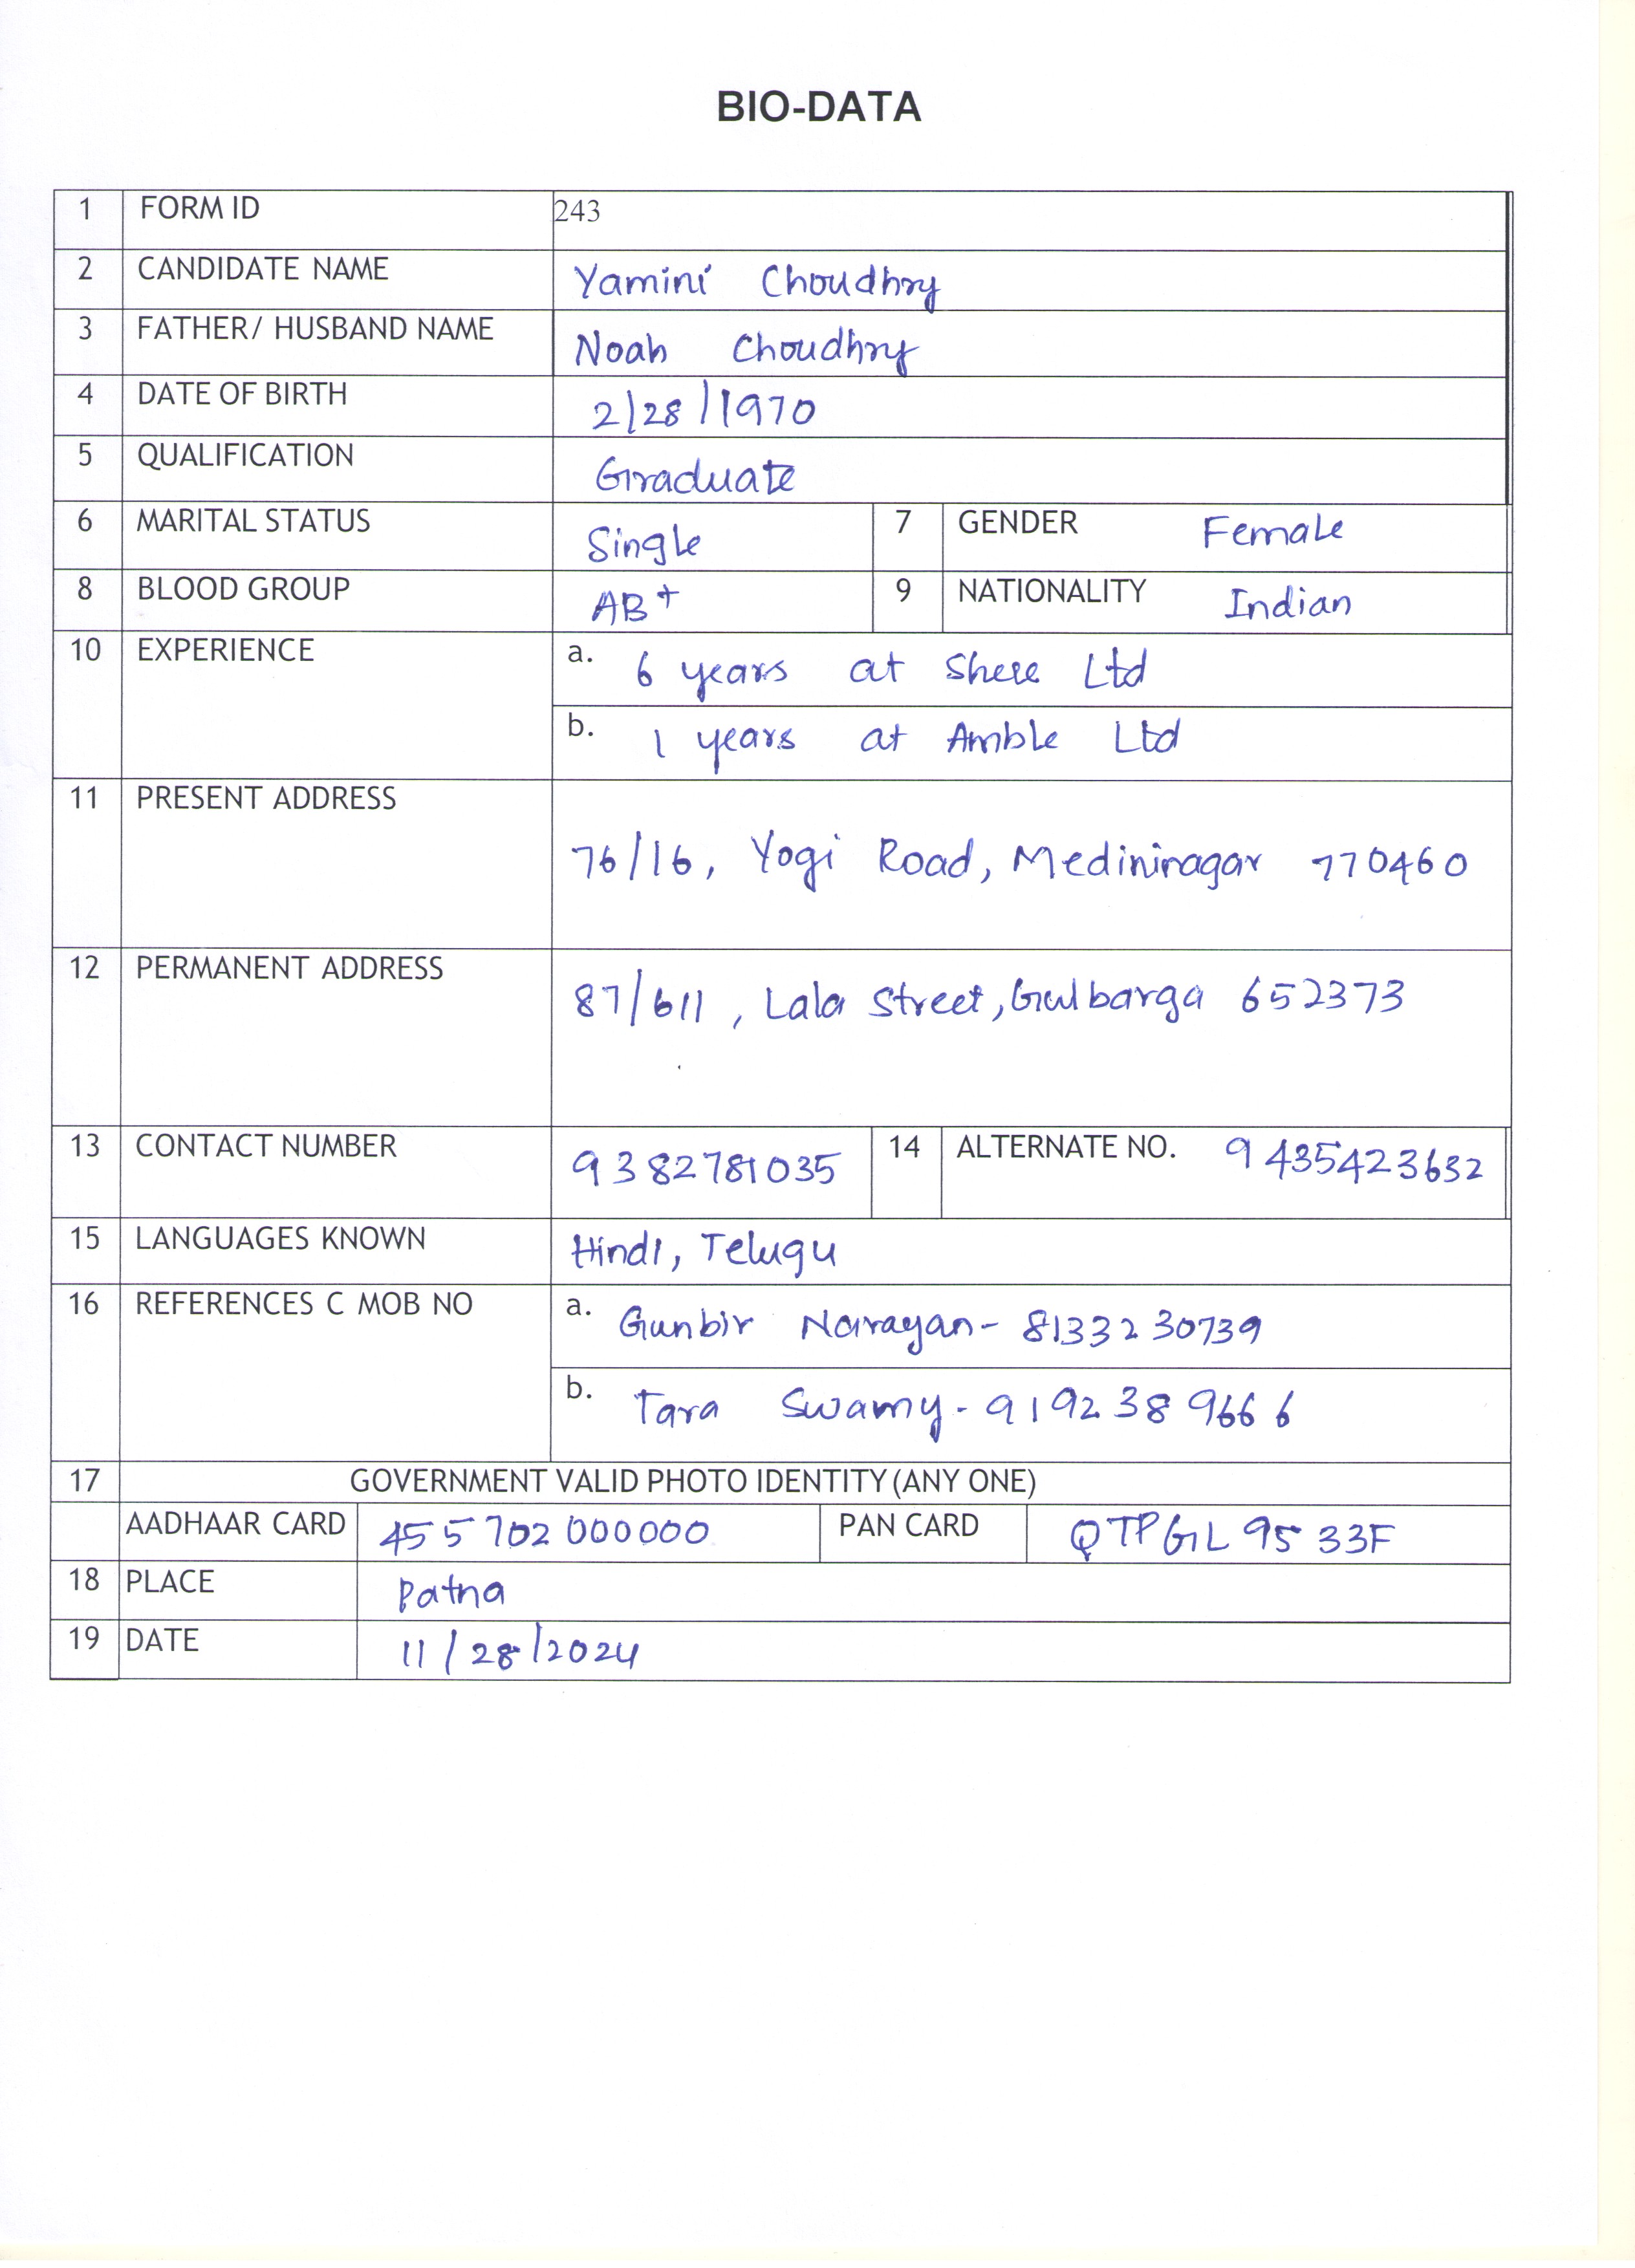 BIO-DATA
1 FORM ID 243
2 CANDIDATE NAME Yamini Choudhry
3 FATHER/ HUSBAND NAME Noah Choudhry
4 DATE OF BIRTH 2/28/1970
5 QUALIFICATION Graduate
6 MARITAL STATUS Single 7 GENDER Female
8 BLOOD GROUP AB+ 9 NATIONALITY Indian
10 EXPERIENCE a. 6 years at Shere Ltd
b. 1 years at Amble Ltd
11 PRESENT ADDRESS
76/16, Yogi Road, Medininagar 770460
12 PERMANENT ADDRESS 87/611, Lala Street, Gulbarga 652373
13 CONTACT NUMBER 9382781035 14 ALTERNATE NO. 9435423632
15 LANGUAGES KNOWN Hindi, Telugu
16 REFERENCES C MOB NO a. Gunbir Narayan- 8133230739
b. Tara Swamy- 9192389666
17 GOVERNMENT VALID PHOTO IDENTITY (ANY ONE)
AADHAAR CARD 455702000000 PAN CARD QTPGL9533F
18 PLACE Patna
19 DATE 11/28/2024